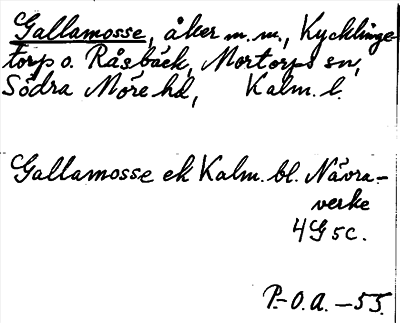 Gallamosse, åker m.m., Kycklinge
torp o. Råsbäck, Mortorps sn,
Södra Möre hd, Kalm. l.
Gallamosse ek Kalm. bl. Nävra-
verke
4G5c.
P.-O.A. -55.